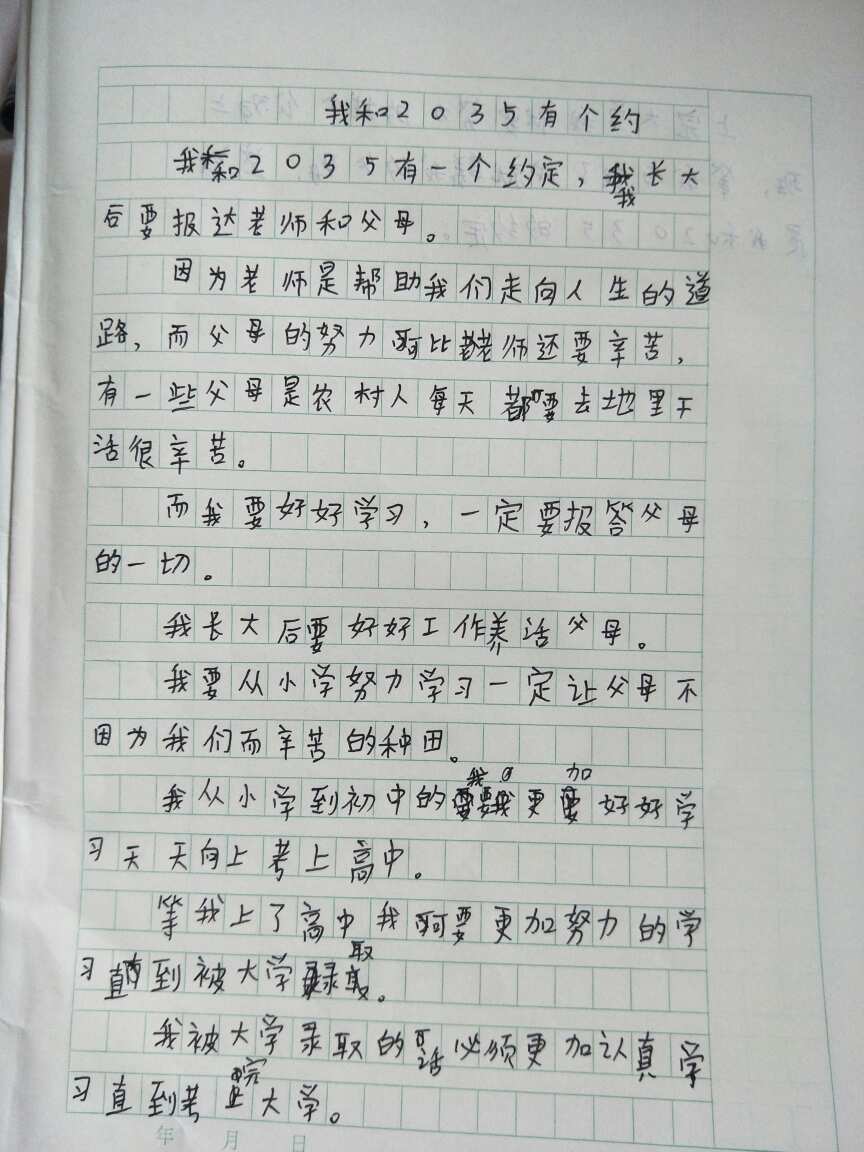 我和2035有个约
我和2035有一个约定，我长大
后要报达老师和父母。
因为老师是帮助我们走向人生的道
路，而父母的努力啊比老师还要辛苦，
有一些父母是农村人每天都要去地里干
活很辛苦。
而我要好好学习，一定要报答父母
的一切。
我长大后要好好工作养活父母。
我要从小学努力学习一定让父母不
因为我们而辛苦的种田。
我从小学到初中的我更加要好好学
习天天向上考上高中。
等我上了高中我啊要更加努力的学
习直到被大学录取。
我被大学录取的话必须更加认真学
习直到考完大学。
年 月 日